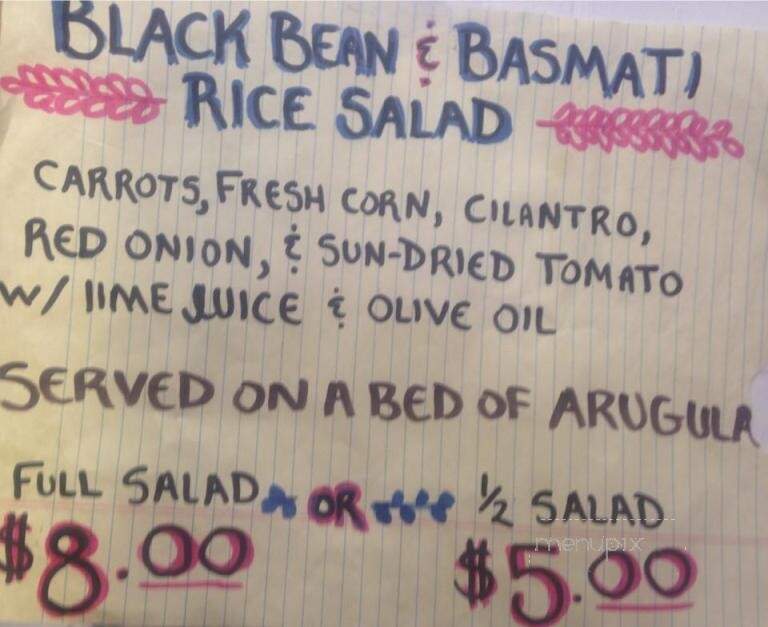 BLACK BEAN & BASMATI
RICE SALAD
CARROTS, FRESH CORN, CILANTRO,
RED ONION, & SUN-DRIED TOMATO
W/ LIME JUICE & OLIVE OIL
SERVED ON A BED OF ARUGULA
FULL SALAD OR 1/2 SALAD
$8.00 $5.00
menupix